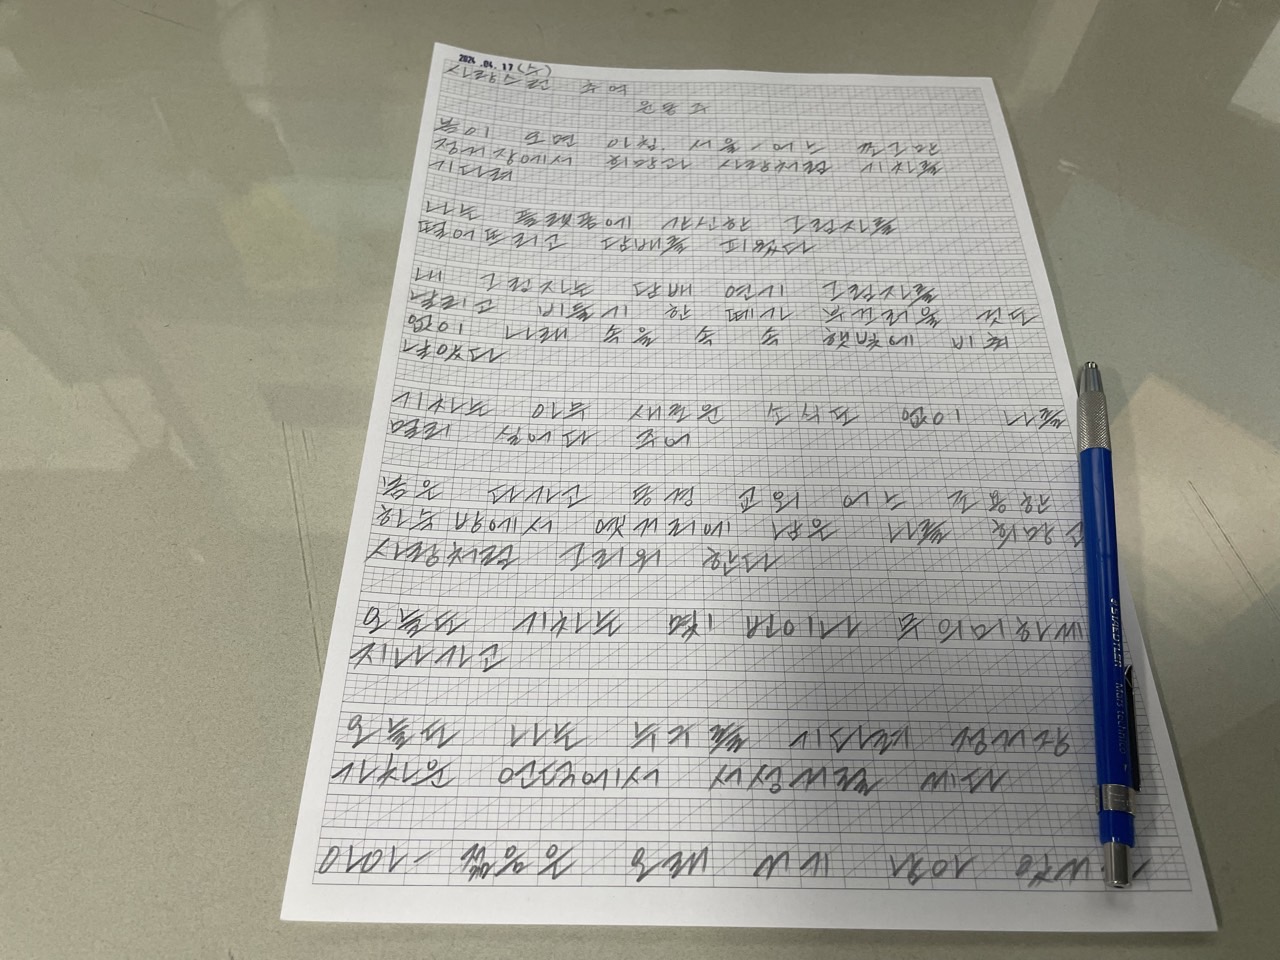 2024.04.17(수)
사랑스런 추억
윤동주
봄이 오던 아침. 서울 - 어느 쪼그만
정거장에서 희망과 사랑처럼 기차를
기다려
나는 플랫폼에 간신한 그림자를
떨어뜨리고 담배를 피웠다
내 그림자는 담배 연기 그림자를
날리고 비둘기 한 떼가 부끄러울 것도
없이 나래 속을 속 속 햇빛에 비춰
날았다
기차는 아무 새로운 소식도 없이 나를
멀리 실어다 주어
봄은 다 가고 동경 교외 어느 조용한
하숙방에서 옛거리에 남은 나를 희망과
사랑처럼 그리워 한다
오늘도 기차는 몇 번이나 무의미하게
지나가고
오늘도 나는 누구를 기다려 정거장
가차운 언덕에서 서성거릴 게다
아아 - 젊음은 오래 거기 남아
STAEDTLER Mars technico